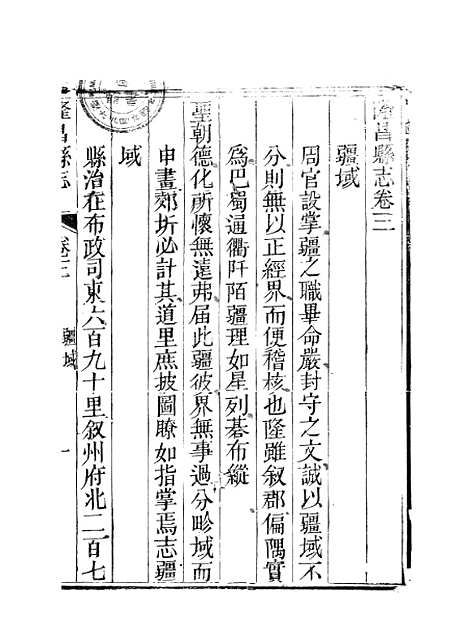 隆昌縣志卷三
疆域
周官設掌疆之職畢命嚴封守之文誠以疆域不
分則無以正經界而便稽核也隆雖叙郡偏隅實
為巴蜀通衢阡陌疆理如星列碁布縱
聖朝德化所懷無遠弗届此疆彼界無事過分畛域而
申畫郊圻必計其道里庶披圖瞭如指掌焉志疆
域
縣治在布政司東六百九十里叙州府北二百七
隆昌縣志
卷三
疆域
一